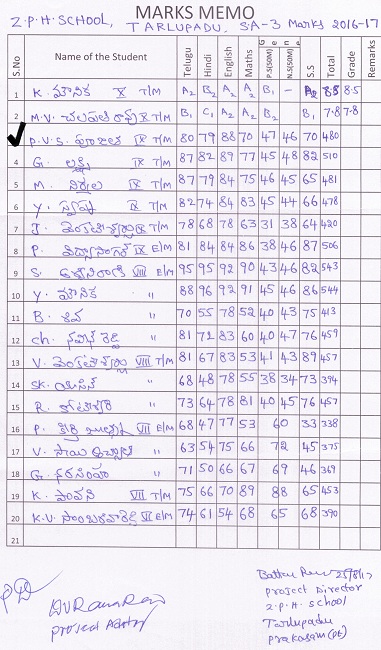 MARKS MEMO
Z.P.H. SCHOOL, TARLUPADU, SA-3 Marks 2016-17
S.No Name of the Student Telugu Hindi English Maths General P.S(50M) N.S(50M) S.S Total Grade Remarks
1 K. మౌనిక X T/M A2 B2 A2 A2 B1 - A2 8.5 8.5
2 M.V. X T/M B1 C1 A2 A2 B2 B1 7.8 7.8
3 P.V.S. IX T/M 80 79 88 70 47 46 70 480
4 G. లక్ష్మి IX T/M 87 82 89 77 45 48 82 510
5 M. నిర్మల IX T/M 87 79 84 75 46 45 65 481
6 Y. IX T/M 82 74 84 83 45 44 66 478
7 J. వెంకటేశ్వర్లు IX T/M 78 68 78 63 31 38 64 420
8 P. విద్యాసాగర్ IX E/M 81 84 84 86 38 46 87 506
9 S. VIII E/M 95 95 92 90 43 46 82 543
10 Y. మౌనిక " 88 96 92 91 45 46 86 544
11 B. శివ " 70 55 78 52 40 43 75 413
12 Ch. నవీన్ రెడ్డి " 81 72 83 60 40 47 76 459
13 V. వెంకటేశ్వర్లు VIII T/M 81 67 83 53 41 43 89 457
14 SK. యాసిన్ " 68 48 78 55 38 34 73 394
15 R. " 73 64 78 81 40 45 76 457
16 P. VII E/M 68 47 77 53 60 33 338
17 V. సాయి " 63 54 75 66 72 45 375
18 G. నరసింహ " 71 50 66 67 69 46 369
19 K. పావని VII T/M 75 66 70 89 88 65 453
20 K.V. సాంబశివారెడ్డి VI E/M 74 61 54 68 65 68 390
21
25/8/17
Project Director
Z.P.H. School
Tarlupadu
Prakasam (Dt)